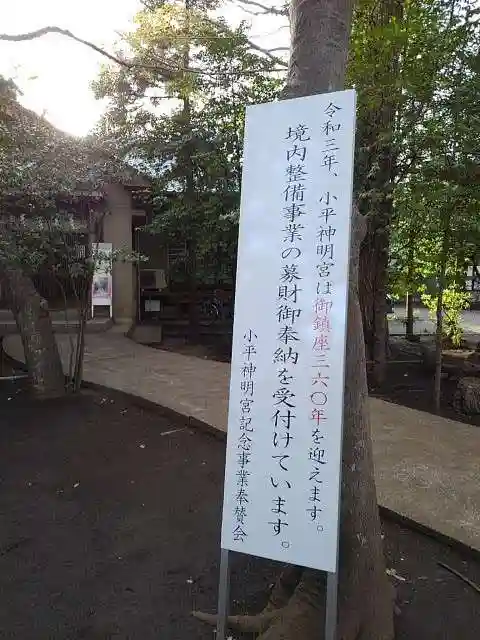 令和三年、小平神明宮は御鎮座三六〇年を迎えます。
境内整備事業の募財御奉納を受付けています。
小平神明宮記念事業奉賛会